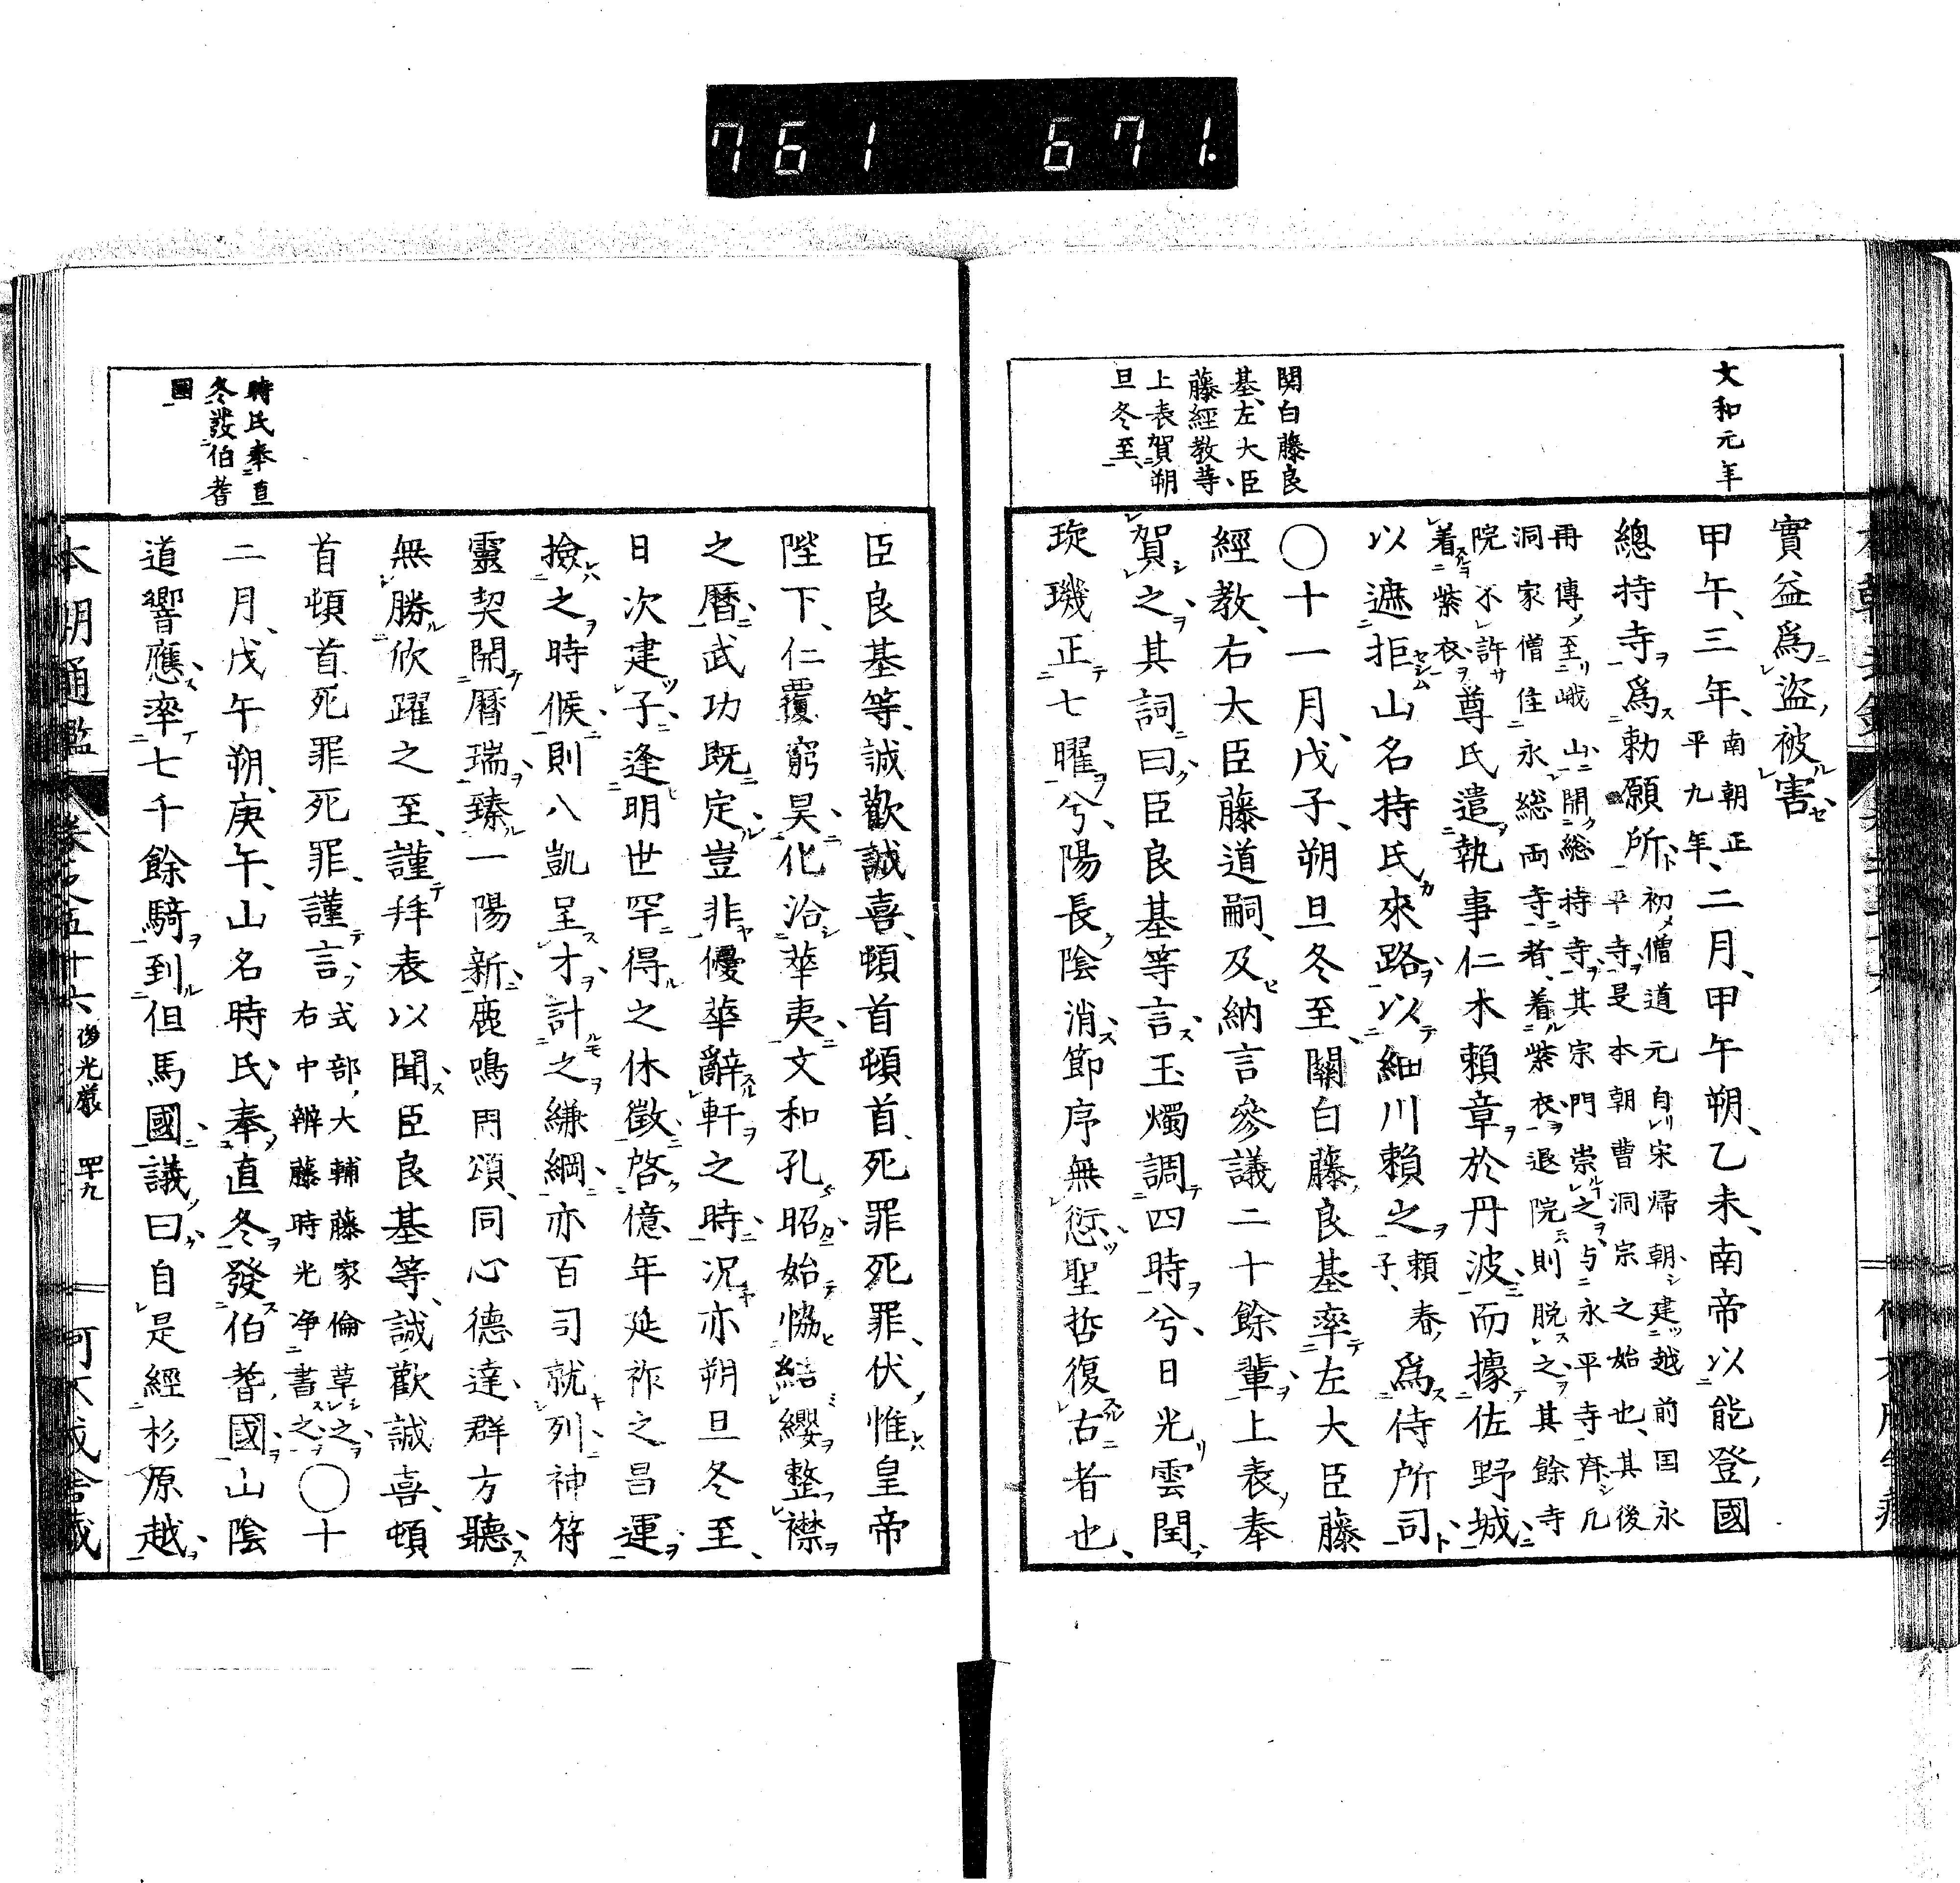 761 671.
文和元年
關白藤良
基、左大臣
藤經教等、
上表賀朔
旦冬至、
實益爲盜被害
甲午、三年、南朝正平九年、二月、甲午朔、乙未、南帝以能登國
總持寺爲勅願所、初僧道元自宋歸朝、建越前国永
平寺是本朝曹洞宗之始也、其後
再傳至峨山開総持寺其宗門崇之与永平寺齊凡
洞家僧住永総両寺者、着紫衣退院則脱之其餘寺
院不許
着紫衣尊氏遣執事仁木賴章於丹波而據佐野城
以遮拒山名持氏來路以細川賴之賴春子、爲侍所司
〇十一月、戊子、朔旦冬至、關白藤良基率左大臣藤
經教、右大臣藤道嗣、及納言參議二十餘輩上表奉
賀之其詞曰臣良基等言玉燭調四時兮、日光雲閏
琁璣正七曜兮、陽長陰消節序無愆聖哲復古者也、
時氏奉直
冬發伯耆
國
臣良基等、誠歡誠喜、頓首頓首、死罪死罪、伏惟皇帝
陛下、仁覆窮昊化洽華夷文和孔昭始恊結纓整襟
之曆武功既定豈非優華辭軒之時況亦朔旦冬至、
日次建子逢明世罕得之休徵啓億年延祚之昌運
撿之時候則八凱呈才計之緜綱亦百司就列神符
靈契開曆瑞臻一陽新鹿鳴用頌、同心德達群方聽
無勝欣躍之至、謹拜表以聞臣良基等、誠歡誠喜、頓
首頓首死罪死罪、謹言式部大輔藤家倫草之
右中辨藤時光淨書之〇十
二月、戊午朔、庚午、山名時氏奉直冬發伯耆國山陰
道響應率七千餘騎到但馬國議曰自是經杉原越
本朝通鑑 卷之五十六 後光嚴 四十九